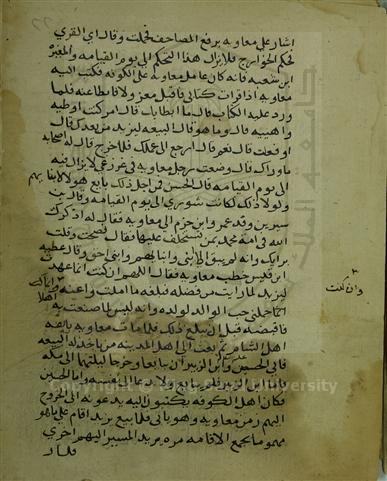 اشار على معاويه برفع المصاحف فحملت وقال اي القرى
فحكم الخوارج فلا يزال هذا التحكم الى يوم القيامه والمغيره
ابن شعبه فانه كان عامل معاويه على الكوفه فكتب اليه
معاويه اذا قرات كتابي فاقبل معزولا فابطا عنه فلما
ورد عليه قال ما ابطا بك قال امر كنت اوطيه
واهييه قال وما هو قال البيعه ليزيد من بعدك قال
اوفعلت قال نعم قال ارجع الى عملك فلما خرج قال له اصحابه
ما وراك قال وضعت رجل معاويه في غرز غي لا يزال فيه
الى يوم القيامه قال الحسن فمن اجل ذلك بايع هولا لابنايهم
ولولا ذلك لكانت شورى الى يوم القيامه وقال بن
سيرين وفد عمرو ابن حزم الى معاويه فقال له اذكرك
الله في امة محمد بمن تستخلف عليها فقال نصحت وقلت
برايك وانه لم يبق الا ابني وابناوهم وابني احق وقال عطيه
ابن قيس خطب معاويه فقال اللهم ان كنت انما عهدت
ليزيد لما رايت من فضله فبلغه ما املت واعنه
وان كنت
انما حملني حب الوالد لولده وانه ليس لما صنعت به اهلا
فاقبضه قبل ان يبلغ ذلك فلما مات معاويه بايعه
اهل الشام ثم بعث الى اهل المدينه من ياخذ له البيعه
فابى الحسين وابن الزبير ان يبايعا وخرجا من ليلتهما الى مكه
فاما ابن الزبير فلم يبايع ولا دعا الى نفسه واما الحسين
فكان اهل الكوفه يكتبون اليه يدعونه الى الخروج
اليهم زمن معاويه وهو يابى فلما بويع يزيد اقام على ما هو
مهموما يجمع الاقامه مره ويريد المسير اليهم اخرى